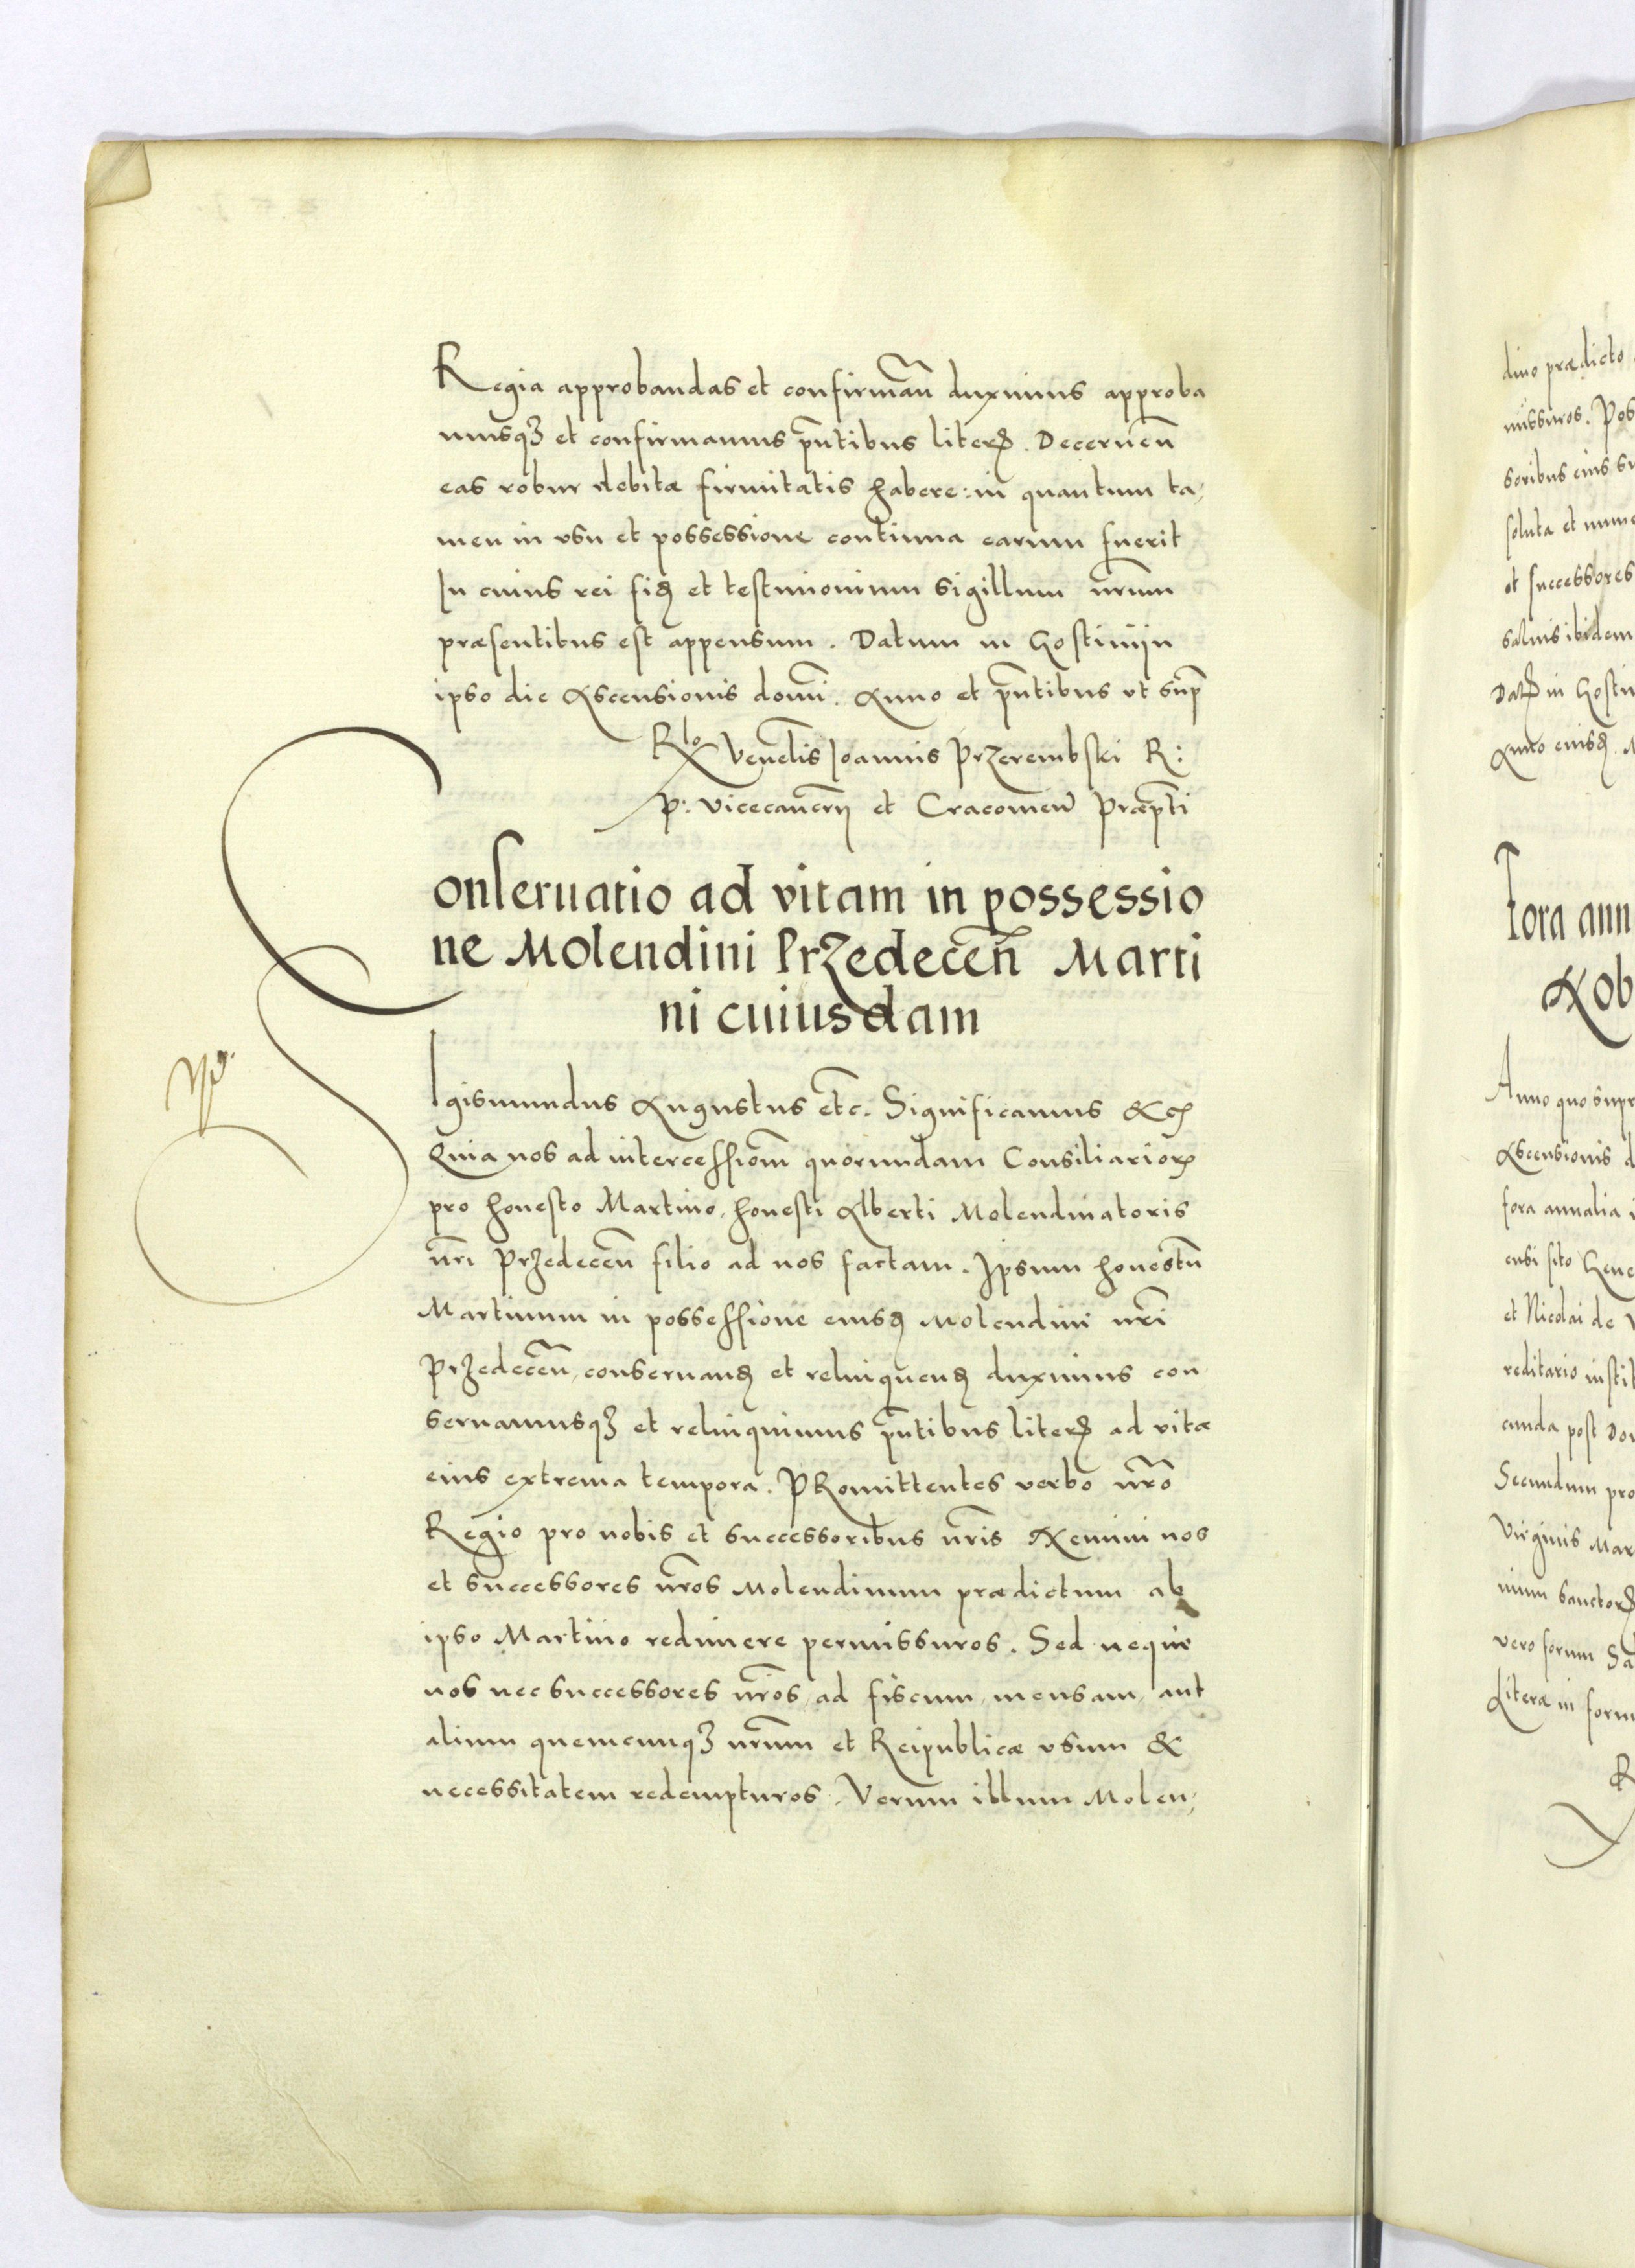 Regia approbandas et confirmañ duximus approba
musqȝ et confirmamus pñtibus literꝭ. Decerneñ
eas robur debitæ firmitatis habere: in quantum ta,
men in vsu et possessione continua earum fuerit
In cuius rei fiꝫ et testimonium sigillum nr̃um
præsentibus est appensum. Datum in Gostiniin
ipso die Ascensionis domi. Anno et pñtibus vt sup̃
Rlo Veneĩlis Ioannis Przerembski R:
P: Vicecancrij et Cracouieñ Præp̃ti
Conseruatio ad vitam in possessio
ne Molendini Przedeceñ Marti
ni cuiusdam
Sigismundus Augustus etc. Significamus &cꝭ
Quia nos ad intercessiom̃ quorundam Consiliarioꝝ
pro honesto Martino, honesti Alberti Molendinatoris
nr̃i Przedeceñ filio ad nos factam. Ipsum honestũ
Martinum in possessione eiusꝫ Molendini nr̃i
Przedeceñ, conseruanꝫ et relinquenꝫ duximus con
seruamusqȝ et relinquimus pñtibus literꝭ ad vitæ
eius extrema tempora. PRomittentes verbo nr̃o
Regio pro nobis et successoribus nr̃is Nemini nos
et successores nr̃os Molendinum prædictum ab
ipso Martino redimere permissuros. Sed neque
nos nec successores nr̃os, ad fiscum, mensam, aut
alium quemcunqȝ nr̃um et Reipublicæ vsum &
necessitatem redempturos. Verum illum Molen,
dino prædicto
missuros. Pos
soribus eius su
soluta et nume
et successores
saluis ibidem
Datꝭ in Gostin
Anno eiusꝫ.
Fora ann
Rob
Anno quo supr
Ascensionis d
fora annalia i
ensi sito Gene
et Nicolai de
reditario instit
cunda post Do
Secundum pro
Virginis Mar
nium sanctoꝝ
vero forum Sa
Literæ in form
R